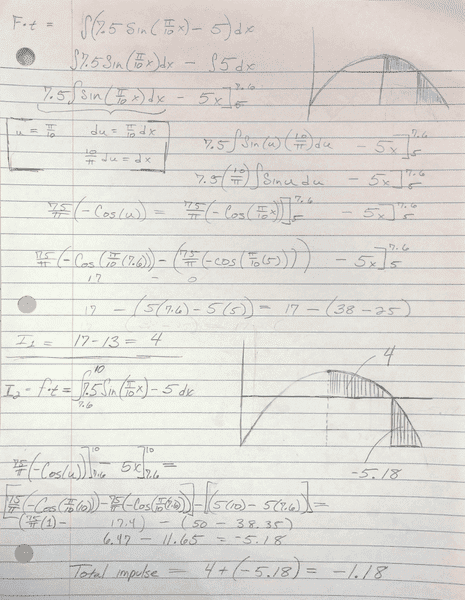 F·t = ∫(7.5 Sin(π/10 x) - 5)dx
∫7.5 Sin(π/10 x)dx - ∫5 dx
7.5 ∫Sin(π/10 x)dx - 5x]₅^7.6
u = π/10 du = π/10 dx
10/π du = dx
7.5 ∫Sin(u)(10/π)du - 5x]₅^7.6
7.5(10/π)∫Sin u du - 5x]₅^7.6
75/π(-Cos(u)) = 75/π(-Cos(π/10 x))]₅^7.6 - 5x]₅^7.6
75/π(-Cos(π/10(7.6)) - (75/π(-cos(π/10(5)))) - 5x]₅^7.6
17 - 0
17 - (5(7.6) - 5(5)) = 17 - (38 - 25)
I₁ = 17 - 13 = 4
I₂ - f·t = ∫₇.₆^10 7.5 Sin(π/10 x) - 5 dx
4
75/π(-Cos(u)]₇.₆^10 - 5x]₇.₆^10 =
-5.18
[75/π(-Cos(π/10(10)) - 75/π(-Cos(π/10(7.6))] - [5(10) - 5(7.6)] =
(75/π(1) - 17.4) - (50 - 38.35)
6.47 - 11.65 = -5.18
Total impulse = 4 + (-5.18) = -1.18